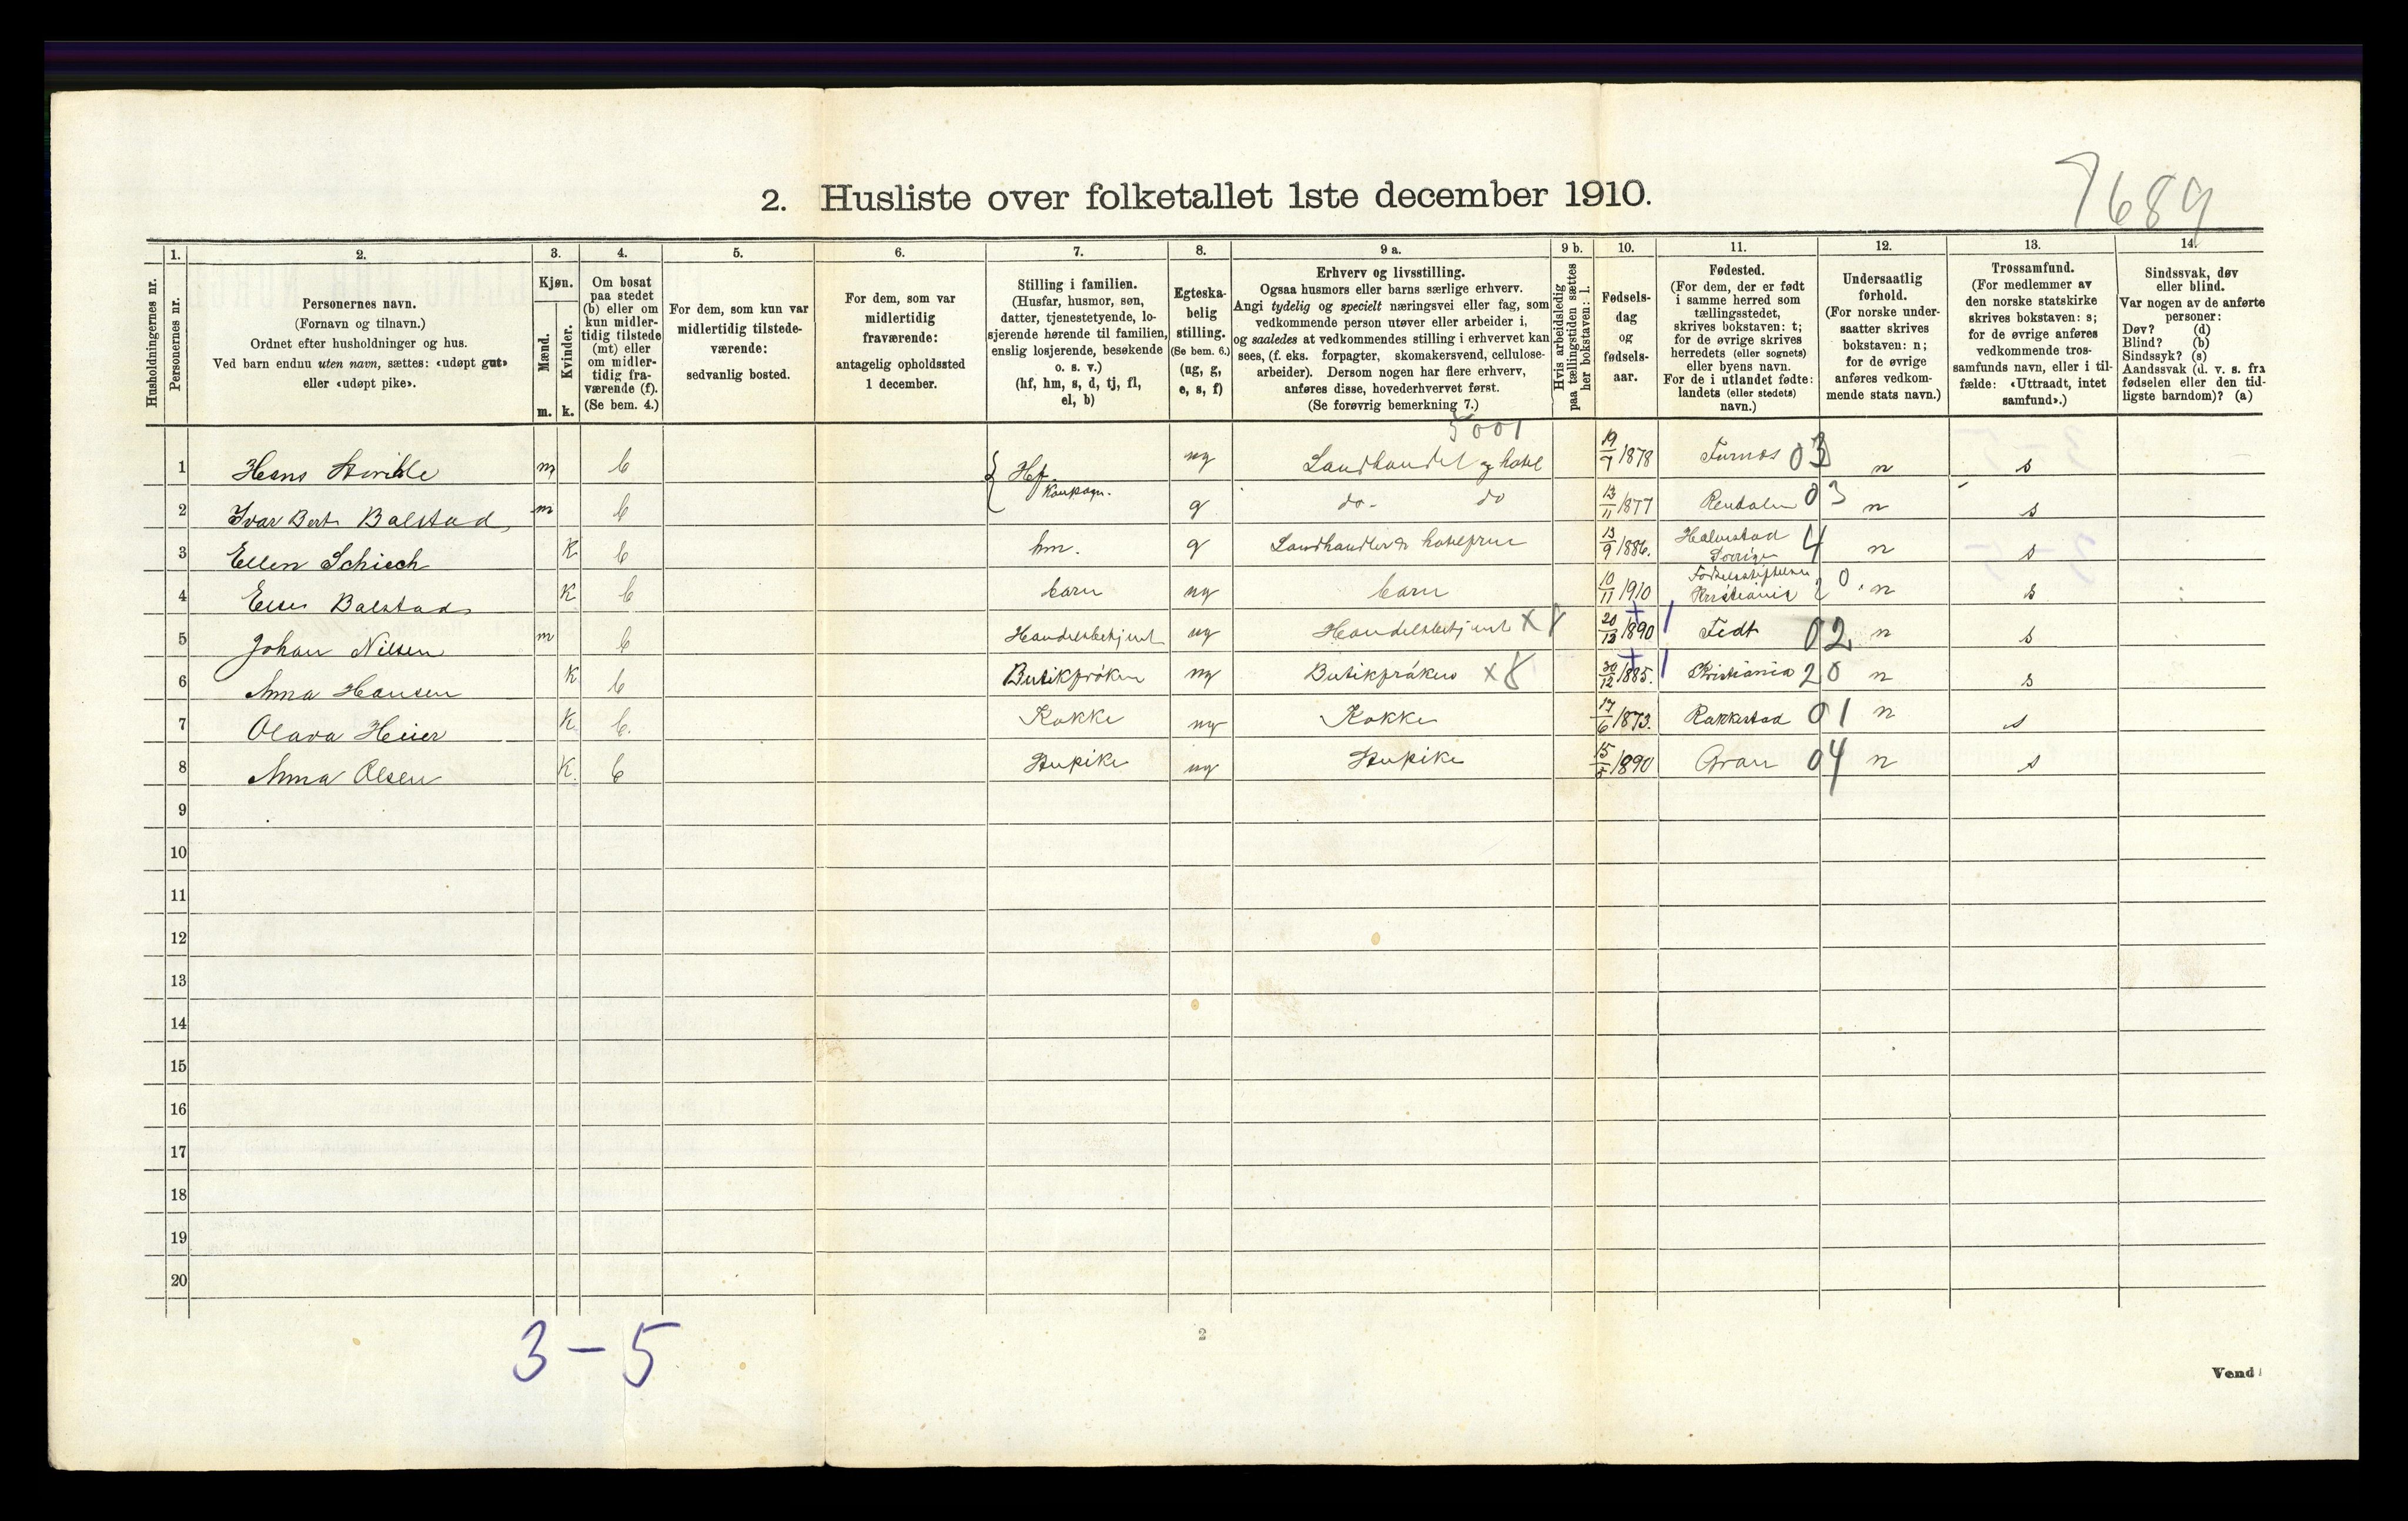 7689
2. Husliste over folketallet 1ste december 1910.
Husholdningernes nr.
1.
Personernes nr.
2.
Personernes navn.
(Fornavn og tilnavn.)
Ordnet efter husholdninger og hus.
Ved barn endnu uten navn, sættes: «udøpt gut»
eller «udøpt pike».
3.
Kjøn.
Mænd.
Kvinder.
m. k.
4.
Om bosat
paa stedet
(b) eller om
kun midler-
tidig tilstede
(mt) eller
om midler-
tidig fra-
værende (f).
(Se bem. 4.)
5.
For dem, som kun var
midlertidig tilstede-
værende:
sedvanlig bosted.
6.
For dem, som var
midlertidig
fraværende:
antagelig opholdssted
1 december.
7.
Stilling i familien.
(Husfar, husmor, søn,
datter, tjenestetyende, lo-
sjerende hørende til familien,
enslig losjerende, besøkende
o. s. v.)
(hf, hm, s, d, tj, fl,
el, b)
8.
Egteska-
belig
stilling.
(Se bem. 6.)
(ug, g,
e, s, f)
9 a.
Erhverv og livsstilling.
Ogsaa husmors eller barns særlige erhverv.
Angi tydelig og specielt næringsvei eller fag, som
vedkommende person utøver eller arbeider i,
og saaledes at vedkommendes stilling i erhvervet kan
sees, (f. eks. forpagter, skomakersvend, cellulose-
arbeider). Dersom nogen har flere erhverv,
anføres disse, hovederhvervet først.
(Se forøvrig bemerkning 7.)
9 b.
Hvis arbeidsledig
paa tællingstiden sættes
her bokstaven: l.
10.
Fødsels-
dag
og
fødsels-
aar.
11.
Fødested.
(For dem, der er født
i samme herred som
tællingsstedet,
skrives bokstaven: t;
for de øvrige skrives
herredets (eller sognets)
eller byens navn.
For de i utlandet fødte:
landets (eller stedets)
navn.)
12.
Undersaatlig
forhold.
(For norske under-
saatter skrives
bokstaven: n;
for de øvrige
anføres vedkom-
mende stats navn.)
13.
Trossamfund.
(For medlemmer av
den norske statskirke
skrives bokstaven: s;
for de øvrige anføres
vedkommende tros-
samfunds navn, eller i til-
fælde: «Uttraadt, intet
samfund».)
14.
Sindssvak, døv
eller blind.
Var nogen av de anførte
personer:
Døv? (d)
Blind? (b)
Sindssyk? (s)
Aandssvak (d. v. s. fra
fødselen eller den tid-
ligste barndom)? (a)
5001
1 Hans m b Hf. ug Landhandel og hotel 19/9 1878 Furnes 03 n s
Kompagn.
2 Ivar Bert Balstad m b g do- do 13/11 1877 Rendalen 03 n s
3 Ellen Schiech K b hm. g Landhandler & hotelfrue 13/9 1886. 4 n s
4 Else Balstad K b barn ug barn 10/11 1910 Fødselsstiftelsen Kristiania 20 n s
5 Johan Nilsen m b Handelsbetjent ug Handelsbetjent x8 20/12 1890 1 Fedt 02 n s
6 Anna Hansen K b Butikfrøken ug Butikfrøken x8 30/12 1885. 1 Kristiania 20 n s
7 Olava Heier K b. Kokke ug Kokke 17/6 1873. Rakkestad 01 n s
8 Anna Olsen K. b Stupike ug Stupike 15/5 1890 Gran 04 n s
9
10
11
12
13
14
15
16
17
18
19
20
3-5
2
Vend